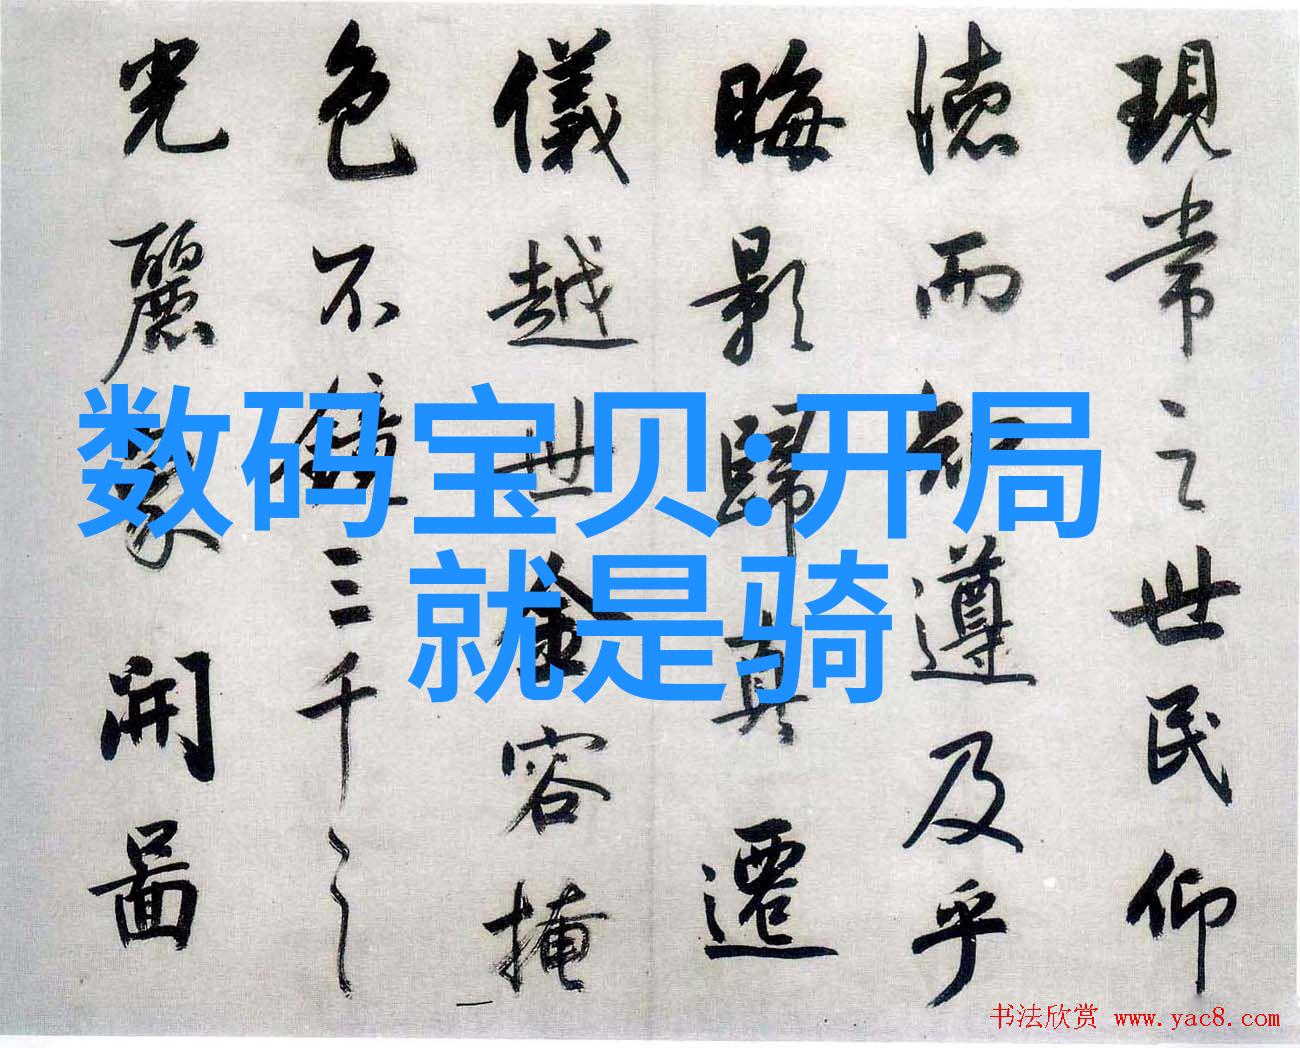 現常之世民仰
德而知遵及乎
晦影歸真遷
儀越世金容掩
色不鏡三千之
光麗象開圖
数码宝贝:开局
就是骑
书法欣赏 www.yac8.com